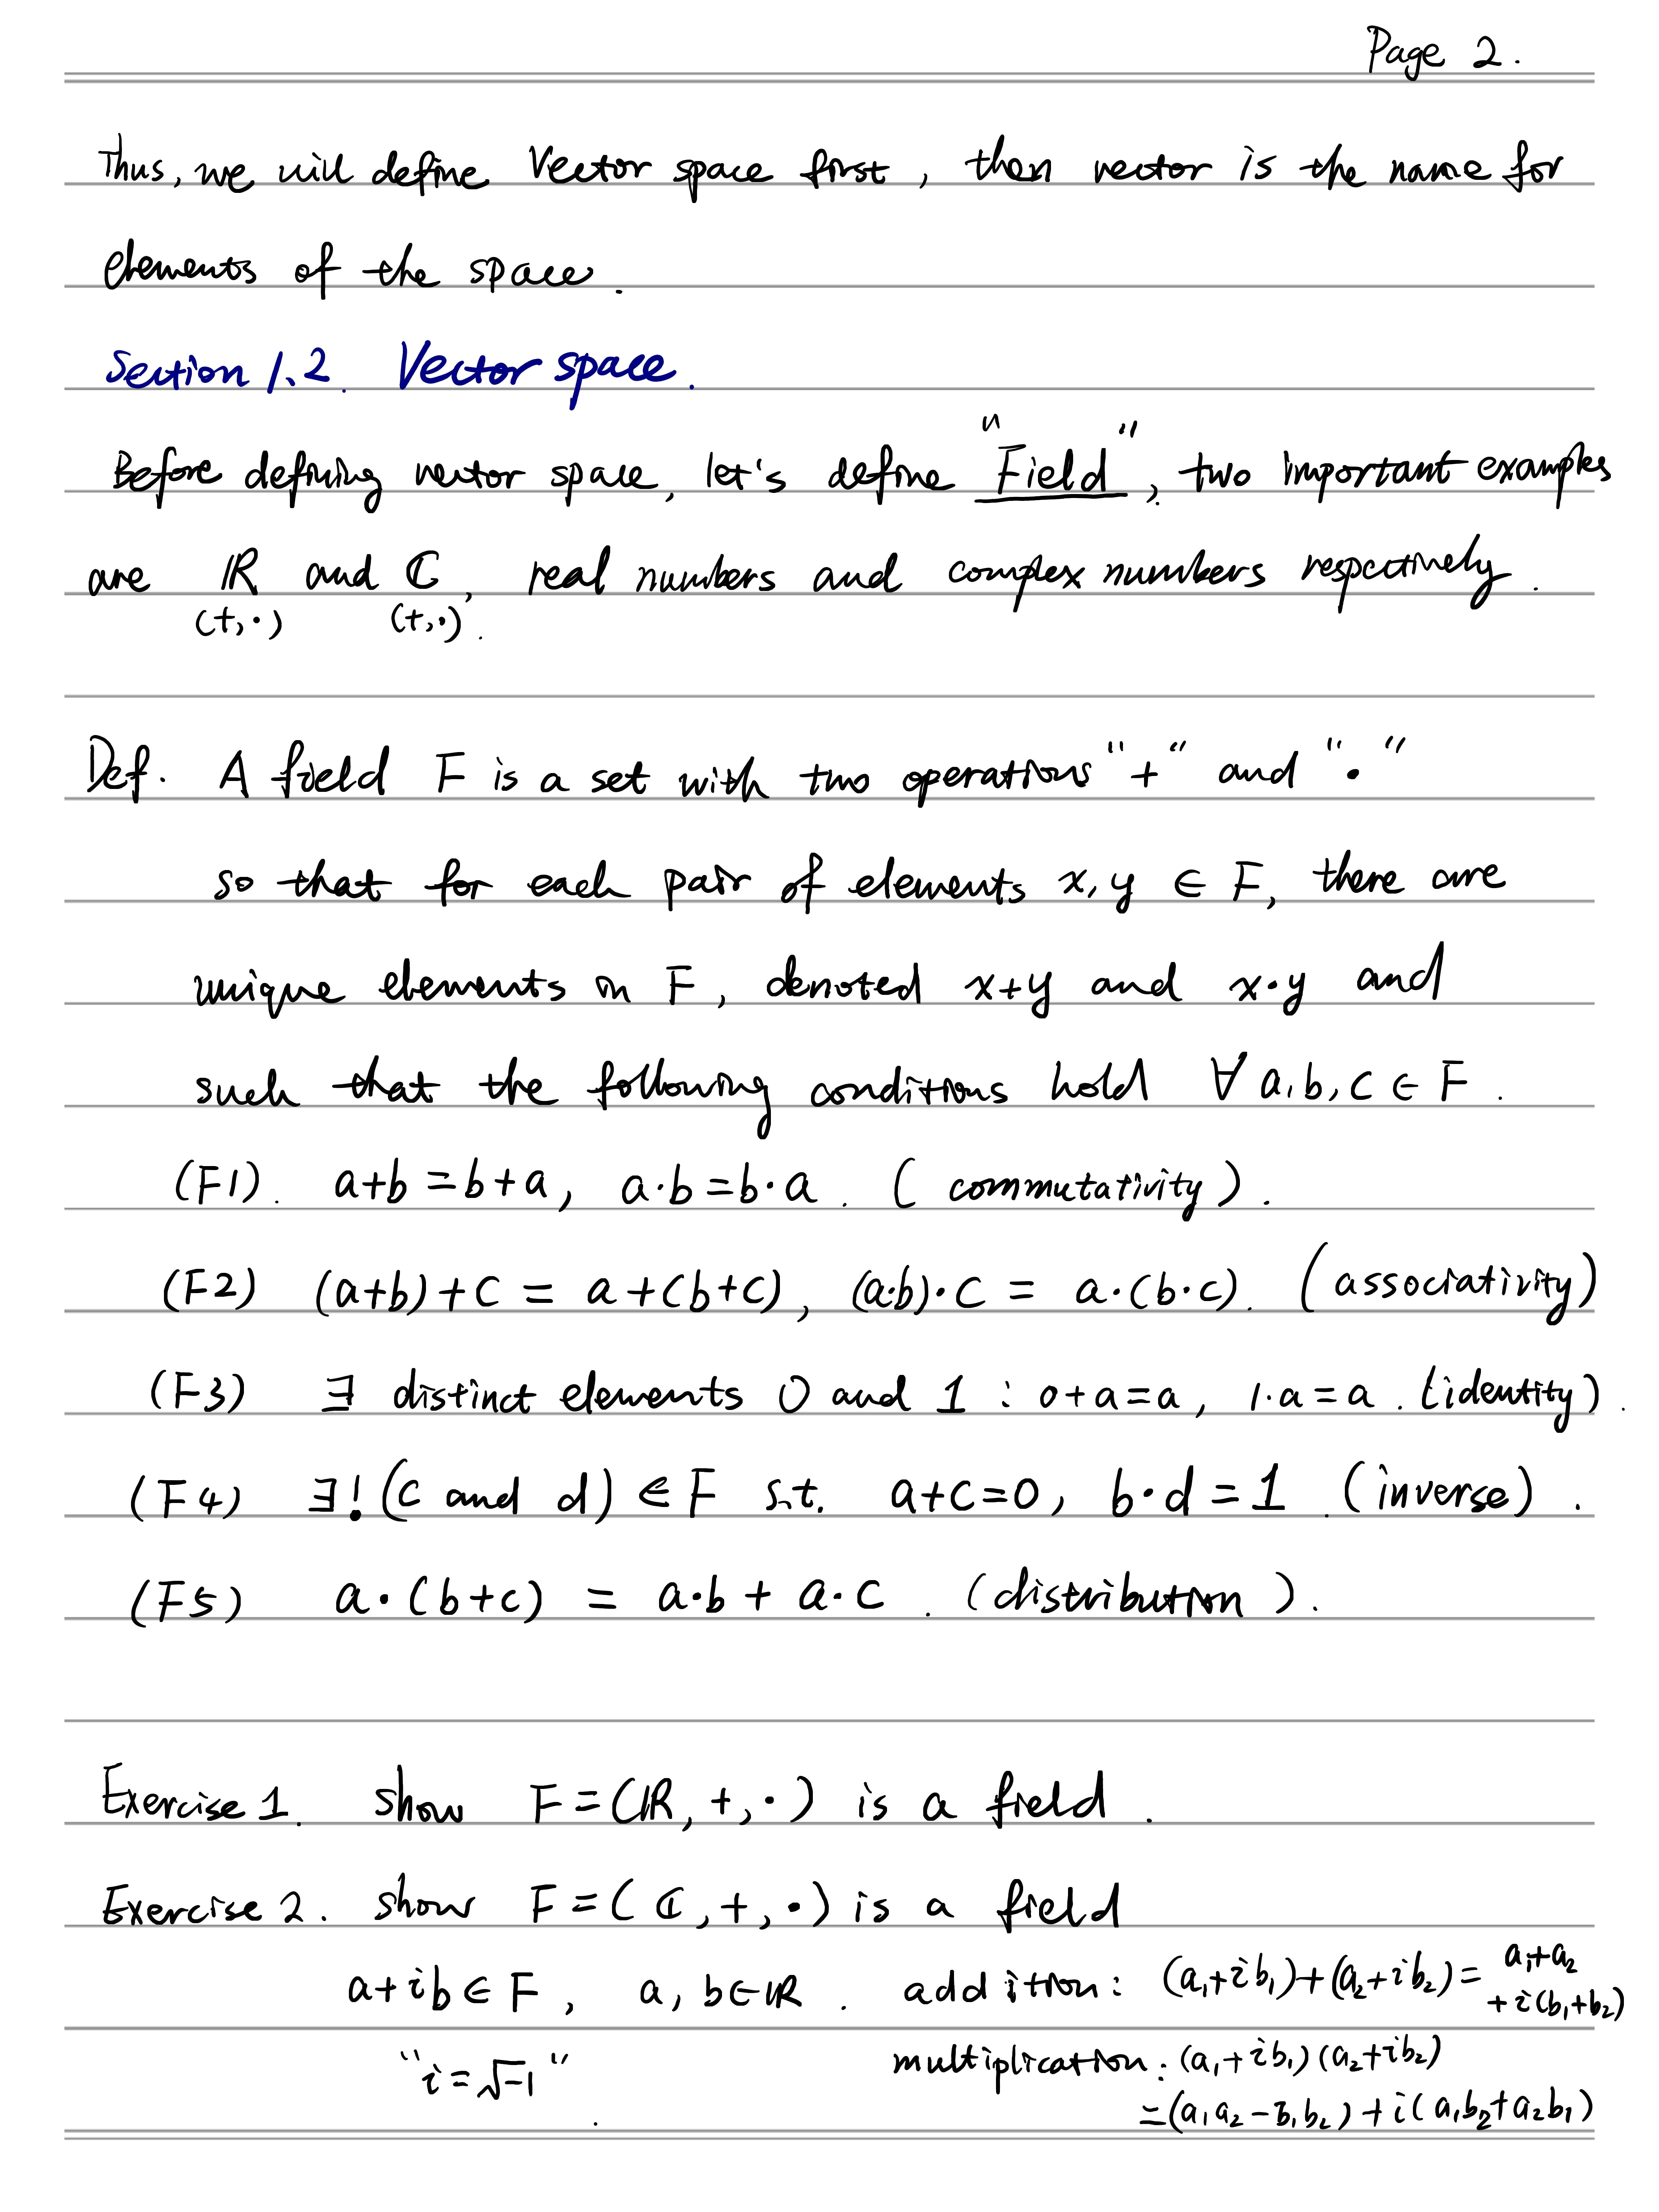 Page 2.
Thus, we will define Vector space first, then vector is the name for
elements of the space.
Section 1.2. Vector space.
Before defining vector space, let's define "Field", two important examples
are ℝ and ℂ, real numbers and complex numbers respectively.
(+,·) (+,·).
Def. A field F is a set with two operations "+" and "·"
so that for each pair of elements x,y ∈ F, there are
unique elements in F, denoted x+y and x·y and
such that the following conditions hold ∀ a,b,c ∈ F.
(F1). a+b=b+a, a·b=b·a. (commutativity).
(F2) (a+b)+c = a+(b+c), (a·b)·c = a·(b·c). (associativity)
(F3) ∃ distinct elements 0 and 1 : 0+a=a, 1·a=a. (identity).
(F4) ∃! (c and d) ∈ F s.t. a+c=0, b·d=1. (inverse).
(F5) a·(b+c) = a·b + a·c. (distribution).
Exercise 1. show F=(ℝ,+,·) is a field.
Exercise 2. show F=(ℂ,+,·) is a field
a+ib ∈ F, a,b∈ℝ. addition: (a₁+ib₁)+(a₂+ib₂)= a₁+a₂
+i(b₁+b₂)
"i=√-1". multiplication: (a₁+ib₁)(a₂+ib₂)
=(a₁a₂-b₁b₂)+i(a₁b₂+a₂b₁)